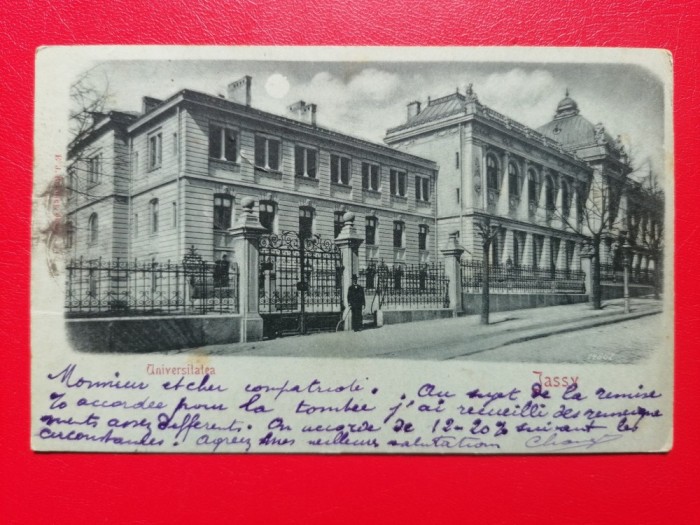 Universitatea
Jassy
Monsieur et cher compatriote. Au sujet de la remise
% accordée pour la tombee j'ai recueilli des renseigne
ments assez differents. On accorde de 12-20% suivant les
circonstances. Agréez mes meilleures salutation